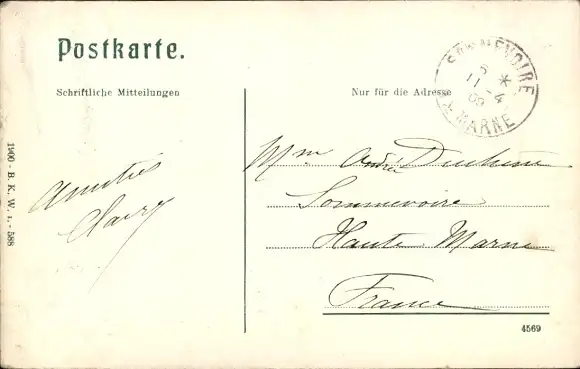 Postkarte.
Schriftliche Mitteilungen
Nur für die Adresse
SOMMEVOIRE
5
11 - 4
09
MARNE
Amitiés
Mme André
Sommevoire
Haute Marne
France
1900 - B. K. W. I. - 588
4569